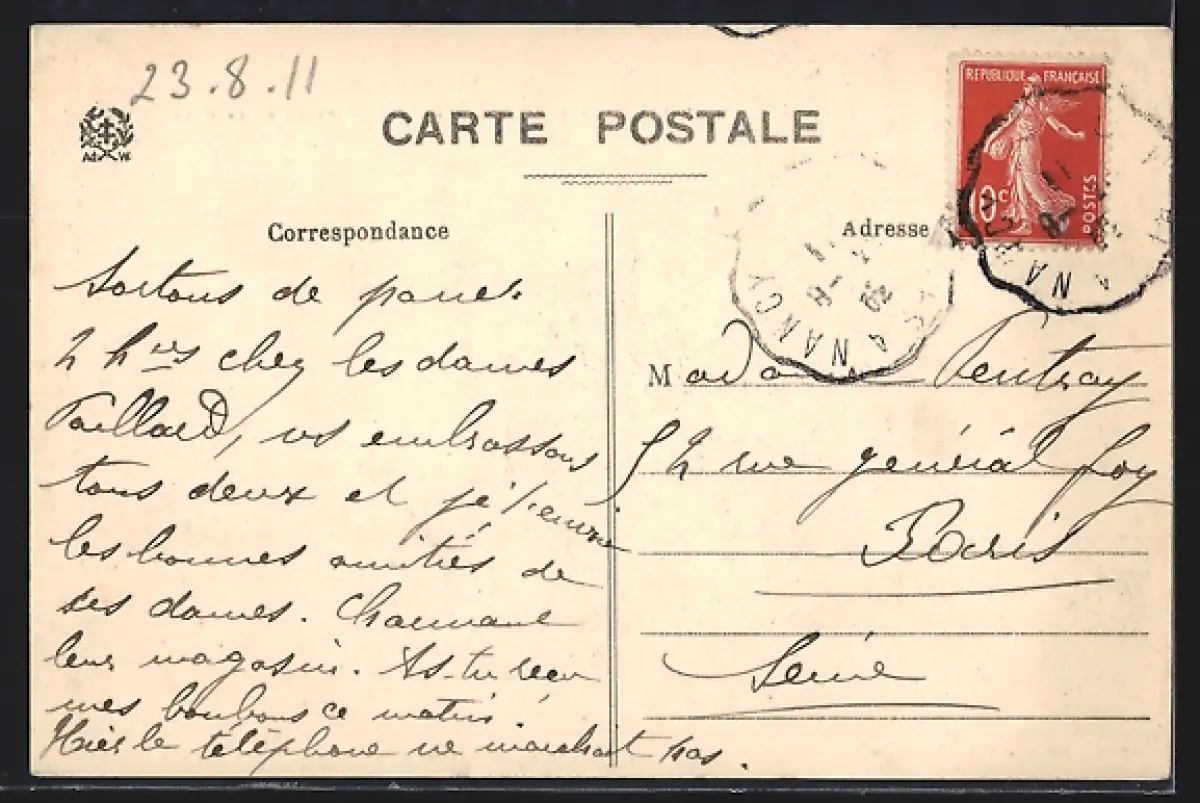 23.8.11
CARTE POSTALE
REPUBLIQUE FRANÇAISE
10c
POSTES
Ad W
Correspondance
Sortons de
2 hres chez les dames
Taillard, vs embrassons
tous deux et je t'envoie
les bonnes amitiés de
ses dames. Charmant
leur magasin. As-tu reçu
mes bonbons ce matin.
Hier le téléphone ne marchait pas.
Adresse
A NANCY
A NA
Madame
52 rue général Foy
Paris
Seine